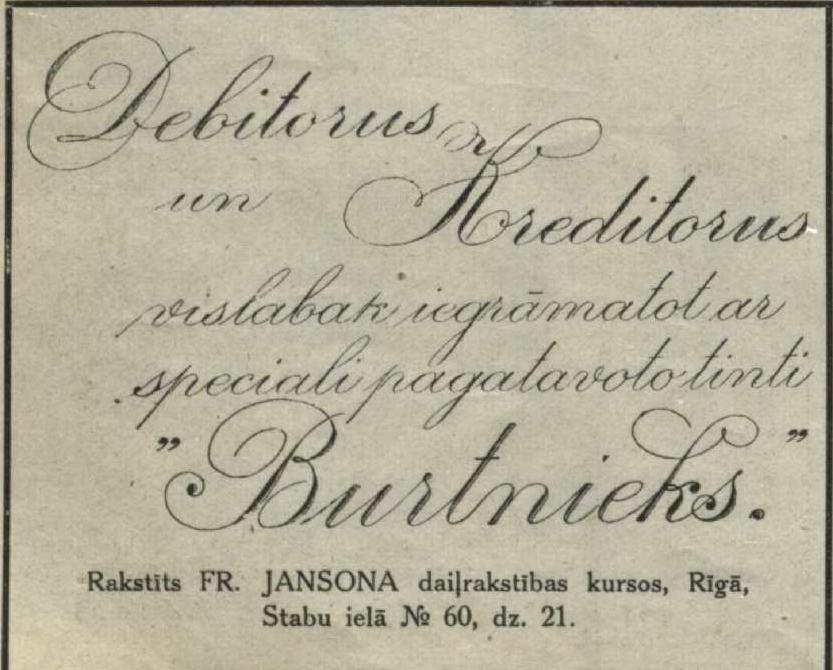 Debitorus
un Kreditorus
vislabak iegrāmatot ar
speciali pagatavoto tinti
”Burtnieks.”
Rakstīts FR. JANSONA daiļrakstības kursos, Rīgā,
Stabu ielā № 60, dz. 21.